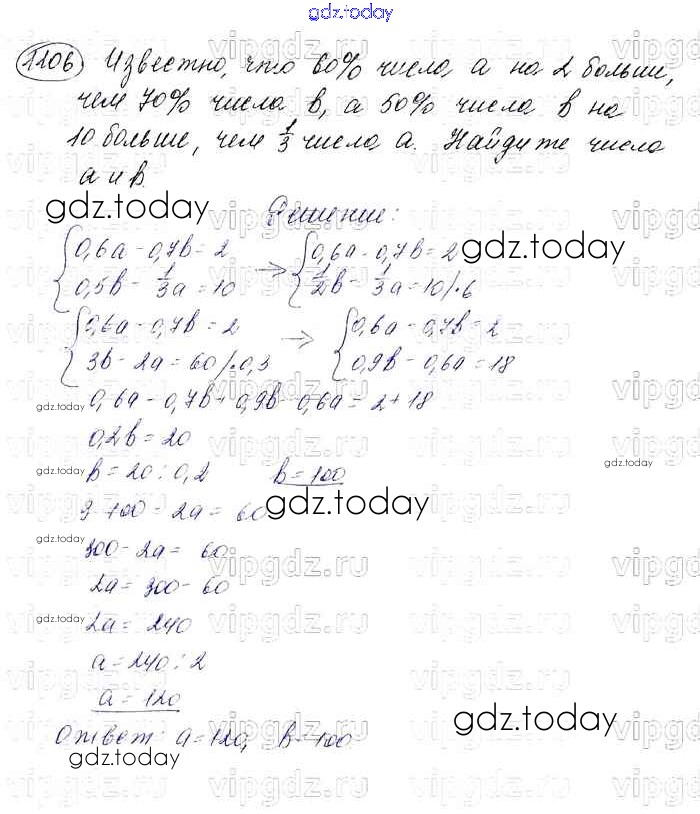 gdz.today
1106 Известно, что 60% числа a на 2 больше,
чем 70% числа b, а 50% числа b на
10 больше, чем 1/3 числа a. Найдите числа
a и b.
gdz.today
Решение:
{0,6a - 0,7b = 2 → {0,6a - 0,7b = 2
{0,5b - 1/3a = 10 {1/2b - 1/3a = 10 /·6
gdz.today
{0,6a - 0,7b = 2 → {0,6a - 0,7b = 2
{3b - 2a = 60 /·0,3 {0,9b - 0,6a = 18
gdz.today
0,6a - 0,7b + 0,9b - 0,6a = 2 + 18
0,2b = 20
gdz.today
b = 20 : 0,2 b = 100
gdz.today
3·100 - 2a = 60
gdz.today
gdz.today
300 - 2a = 60
2a = 300 - 60
gdz.today
2a = 240
a = 240 : 2
a = 120
gdz.today
Ответ: a = 120, b = 100
vipgdz.ru